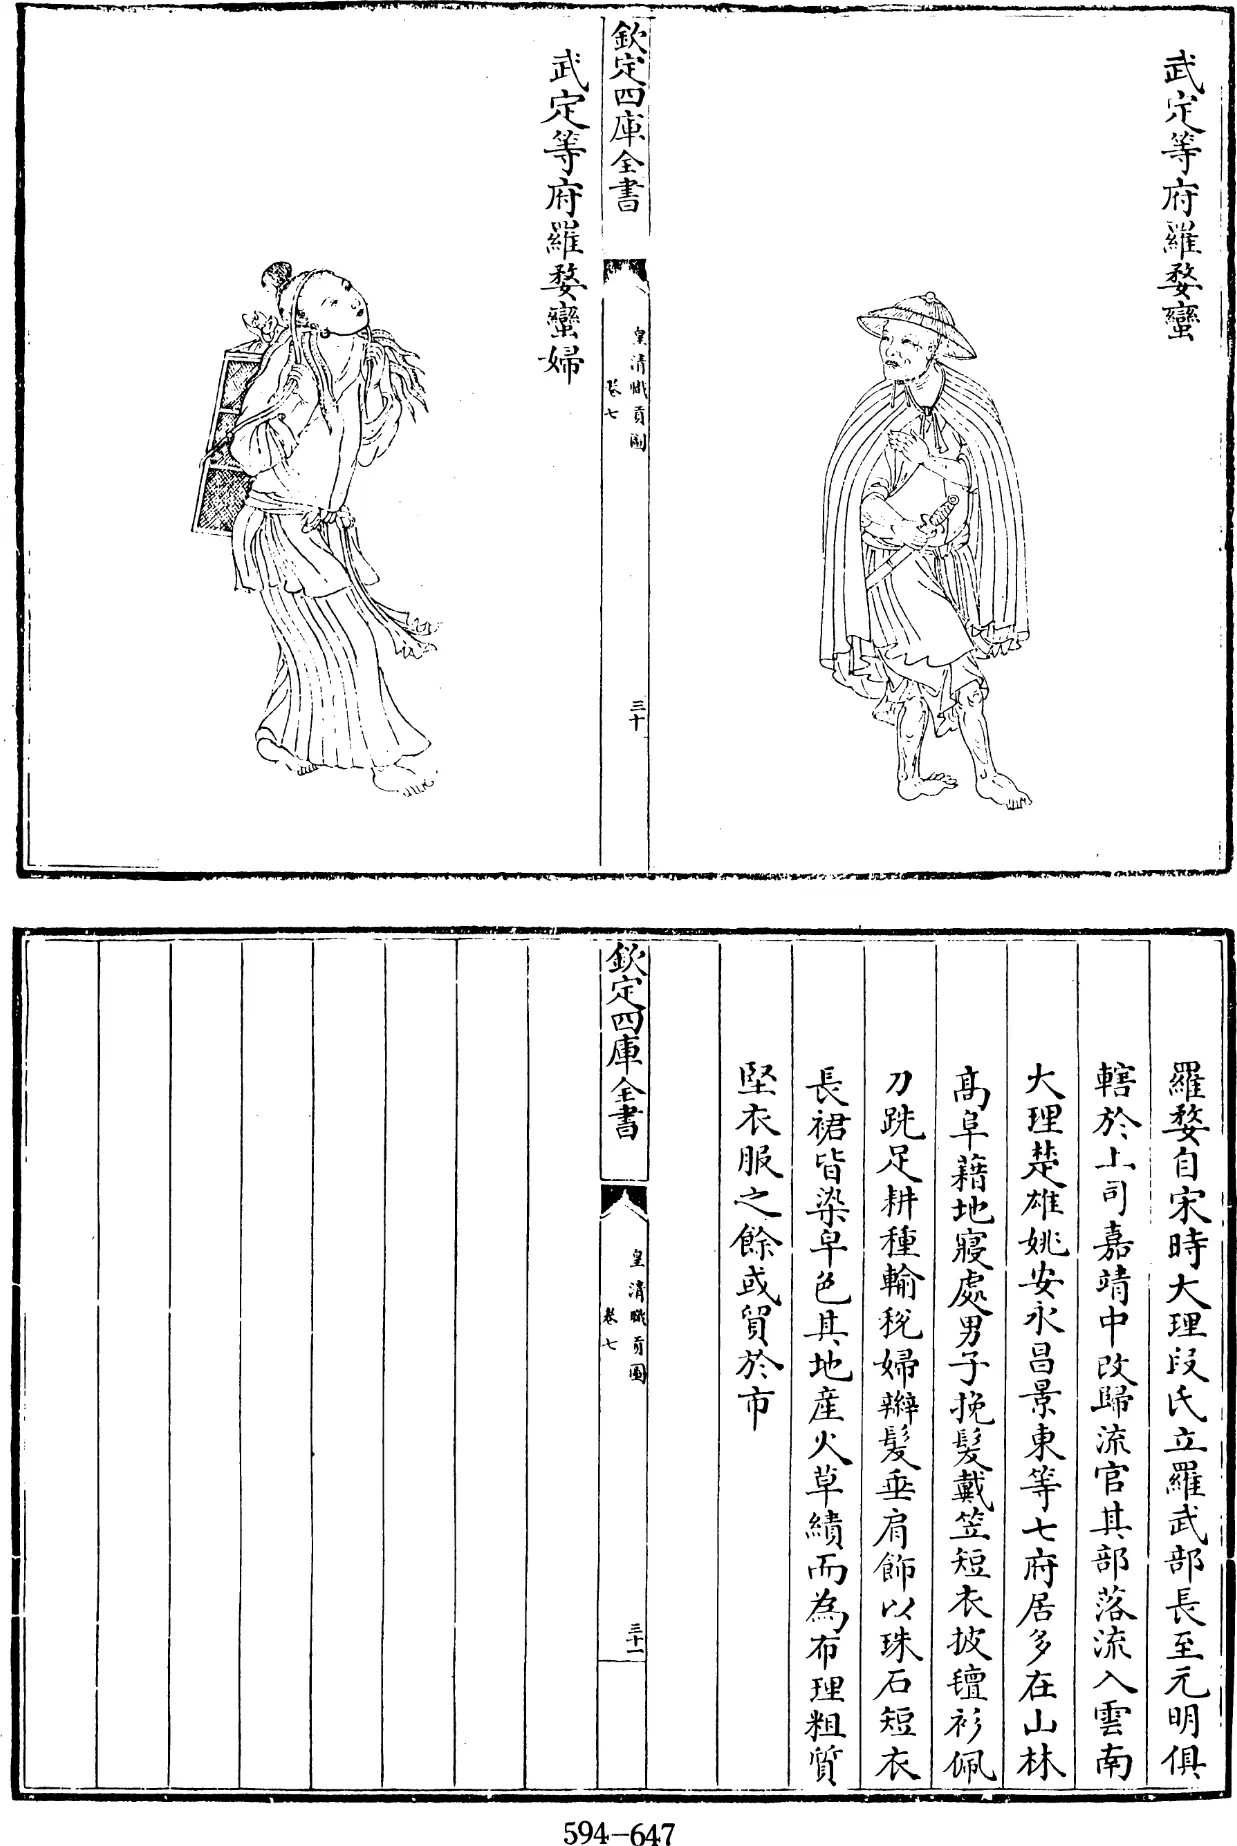 武定等府羅婺蠻
欽定四庫全書
皇清職貢圖
卷七
三十
武定等府羅婺蠻婦
羅婺自宋時大理段氏立羅武部長至元明俱
轄於土司嘉靖中改歸流官其部落流入雲南
大理楚雄姚安永昌景東等七府居多在山林
高阜藉地寢處男子挽髮戴笠短衣披氊衫佩
刀跣足耕種輸稅婦辮髮垂肩飾以珠石短衣
長裙皆染皁色其地産火草績而為布理粗質
堅衣服之餘或貿於市
欽定四庫全書
皇清職貢圖
卷七
三十一
594-647